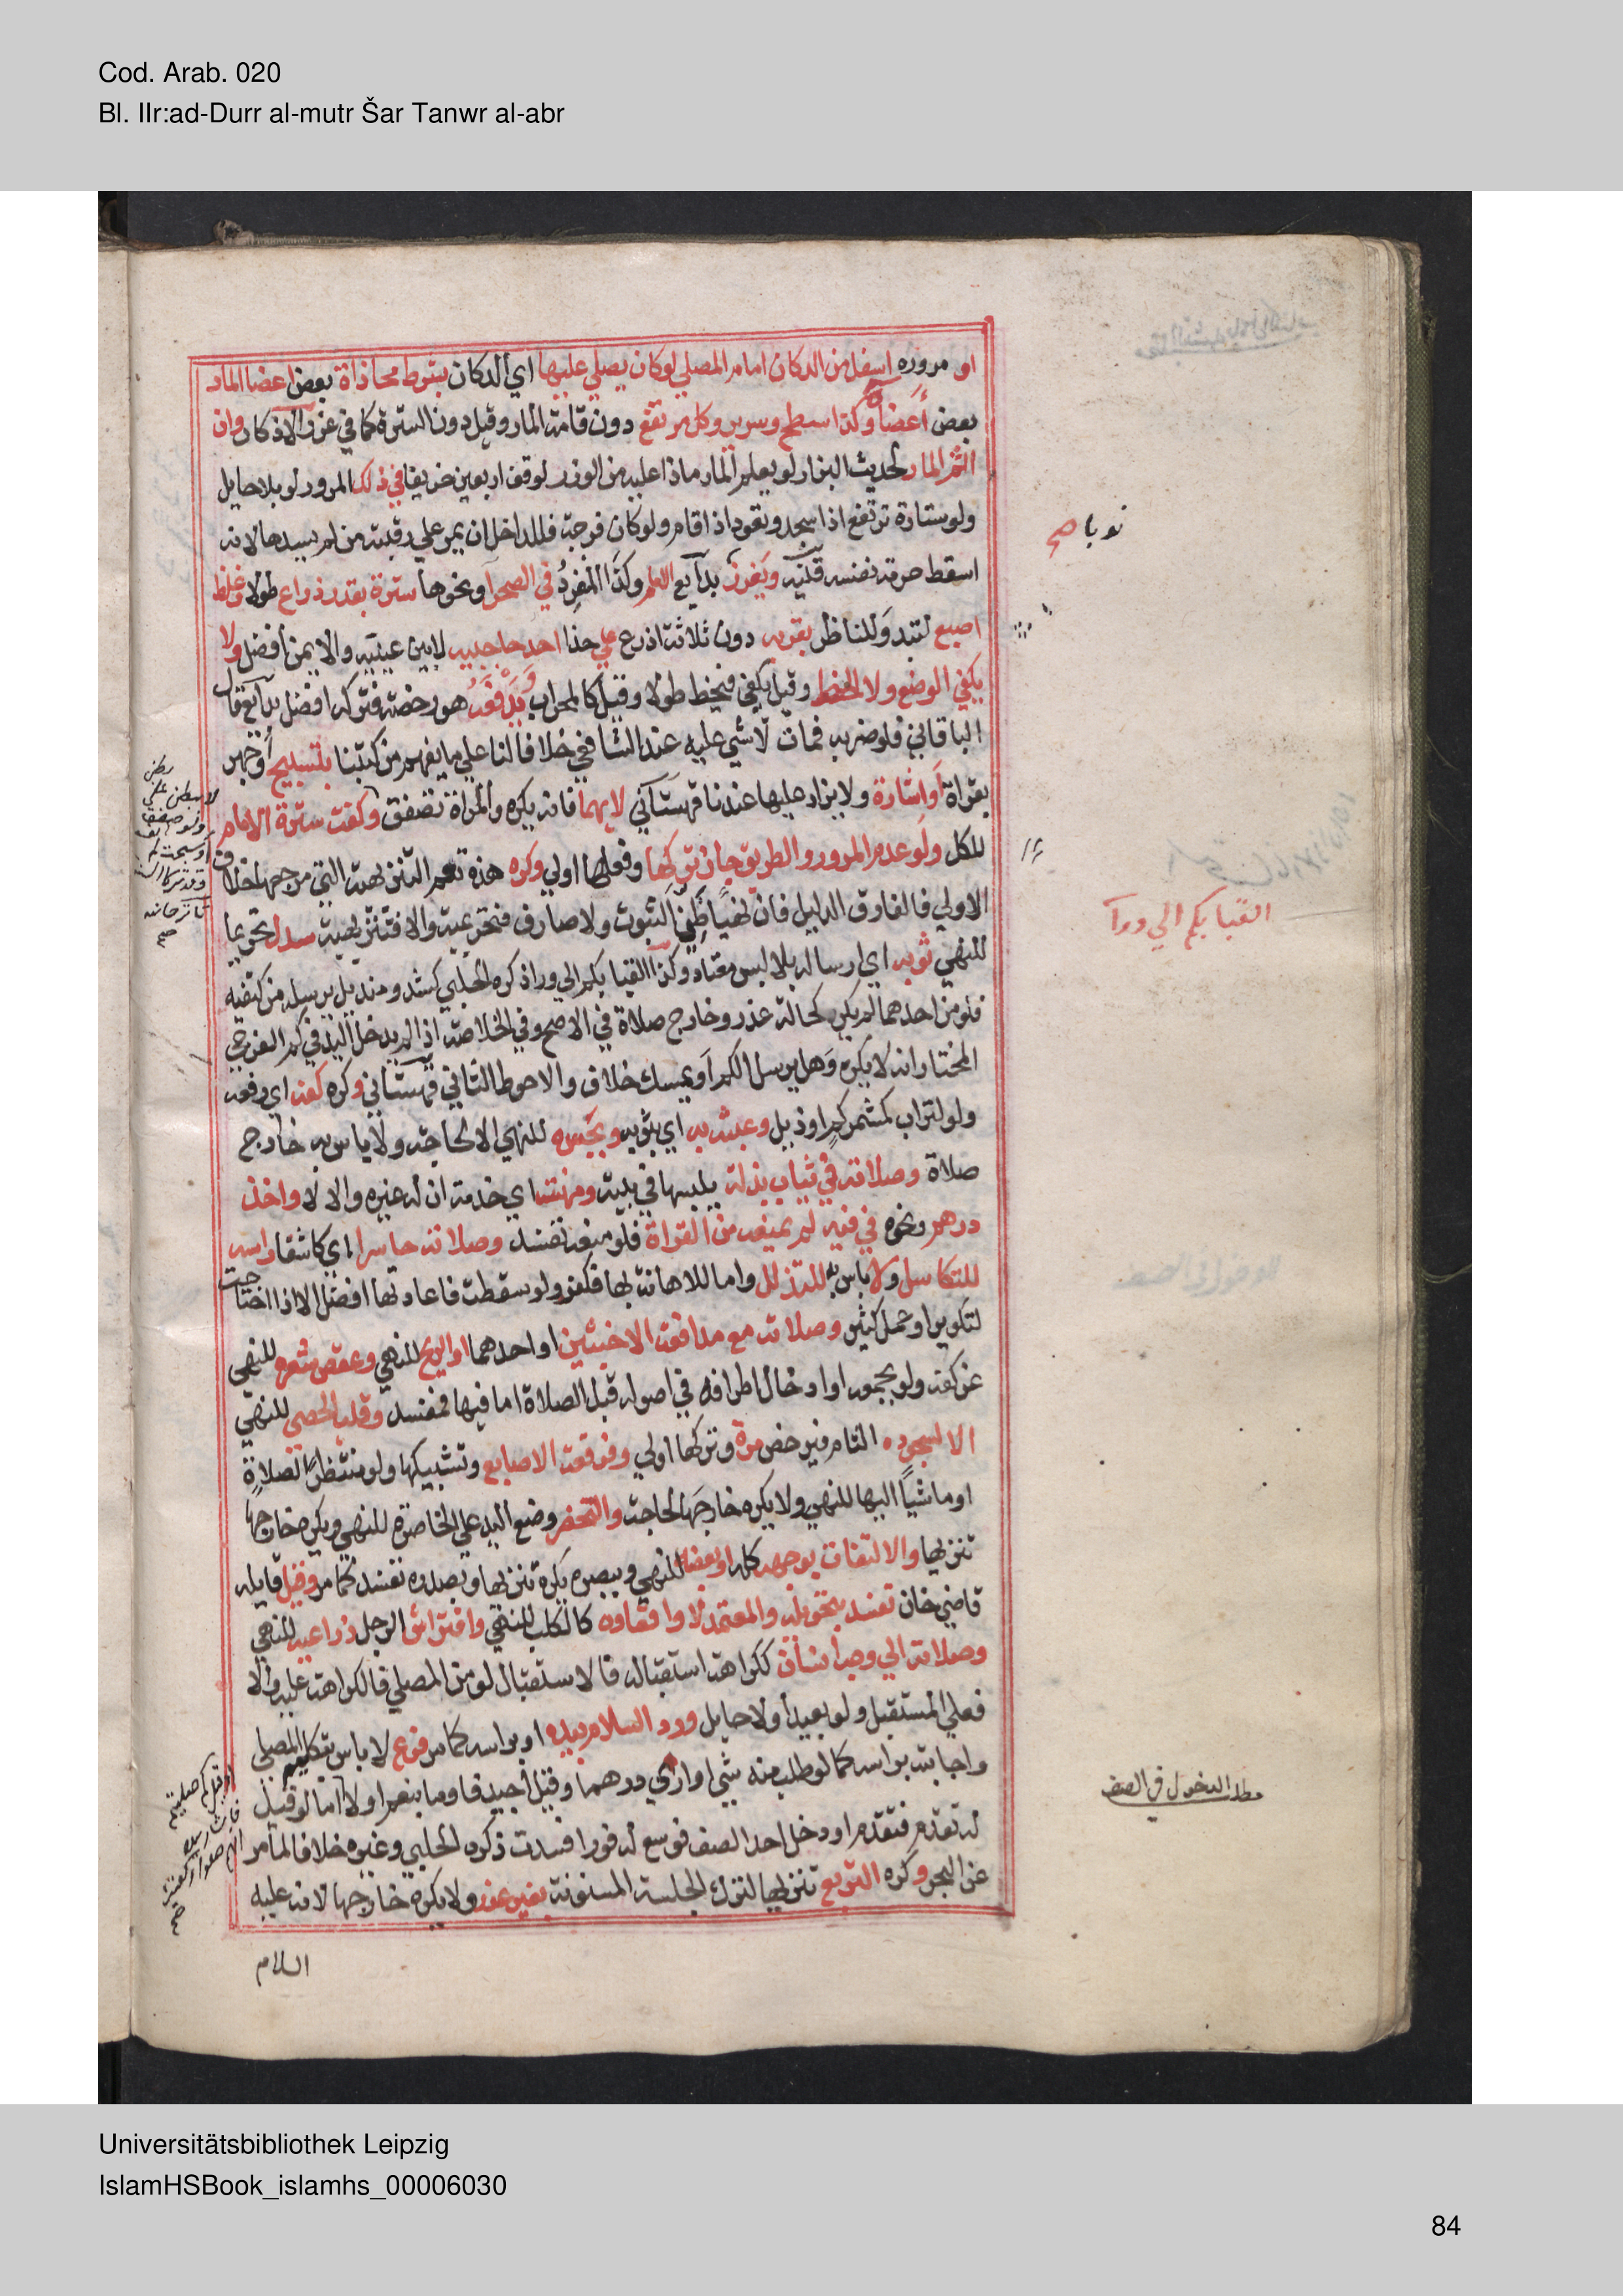 Cod. Arab. 020
Bl. IIr:ad-Durr al-mutr Šar Tanwr al-abr
او مروره اسفل من الدكان امام المصلي لو كان يصلي عليها اي الدكان بشرط محاذاة بعض اعضا المار
بعض أعضا وكذا سطح وسرير وكل مرتفع دون قامة المار وقيل دون السترة كما في غرر الاذكار وان
اثم المار لحديث البزار لو يعلم المار ماذا عليه من الوزر لوقف اربعين خريفا في ذلك المرور لو بلا حايل
ولو ستارة ترتفع اذا سجد وتعود اذا قام ولو كان فرجة فللداخل ان يمر علي رقبة من لم يسدها لانه
اسقط حرمة نفسه قنيه ويغرز بدآيع العلم وكذا المفرد في الصحرا ونحوها سترة بقدر ذراع طولا وغلظ
اصبع لتبدو للناظر بقربه دون ثلاثة اذرع علي حذا احد حاجبيه لابين عينيه والايمن أفضل ولا
يكفي الوضع ولا الخط وقيل يكفي فيخط طولا وقيل كالمحراب ويدفعه هو رخصة فتركه افضل بدآيع قال
الباقاني فلو ضربه فمات لا شي عليه عند الشافعي خلافا لنا علي ما يفهم من كتبنا بتسبيح أو جهر
بقراة أو اشارة ولا يزاد عليها عندنا قهستاني لا بهما فانه يكره والمراة تصفق وكفت سترة الامام
للكل ولو عدم المرور والطريق جاز تركها وفعلها اولي وكره هذه تعم التنزيهية التي مرجعها خلاف
الاولي فالفارق الدليل فان نهيًا ظني الثبوت ولا صارف فتحريمية والا فتنزيهية سدل تحريما
للنهي ثوبه اي ارساله بلا لبس معتاد وكذا القبا بكم الي ورا ذكره الحلبي كشد ومنديل يرسله من كتفيه
فلو من احدهما لم يكره كحالة عذر وخارج صلاة في الاصح وفي الخلاصة اذا لم يدخل اليد في كم الفرجي
المختار انه لا يكره وهل يرسل الكم أو يمسك خلاف والاحوط الثاني قهستاني وكره كفه اي رفعه
ولو لتراب كمشمر كم او ذيل وعبثه به اي بثوبه وبجسده للنهي الا لحاجة ولا باس به خارج
صلاة وصلاته في ثياب بذلة يلبسها في بيته ومهنته اي خدمة ان له غيره والا لا واخذ
درهم ونحوه في فيه لم يمنعه من القراة فلو منعه تفسد وصلاته حاسرا اي كاشفا راسه
للتكاسل ولا باس به للتذلل واما للاهانة بها فكفر ولو سقطت فاعادتها افضل الا اذا احتاجت
لتكوير او عمل كثير وصلاته مع مدافعة الاخبثين او احدهما او الريح للنهي وعقص شعره للنهي
عن كفه ولو بجمعه او ادخال اطرافه في اصوله قبل الصلاة اما فيها فمفسد وقلب الحصي للنهي
الا لسجوده التام فيرخص مرة وتركها اولي وفرقعة الاصابع وتشبيكها ولو منتظرا لصلاة
او ماشيًا اليها للنهي ولا يكره خارجها لحاجة والتخصر وضع اليد علي الخاصرة للنهي ويكره خارجها
تنزيها والالتفات بوجهه كله او بعضه للنهي وببصره يكره تنزيها وبصدره تفسد كما مر وقيل قايله
قاضي خان تفسد بتحويله والمعتمد لا واقعاوه كالكلب للنهي وافتراش الرجل ذراعيه للنهي
وصلاته الي وجه انسان ككراهة استقباله فالاستقبال لو من المصلي فالكراهة عليه والا
فعلي المستقبل ولو بعيدا ولا حايل ورد السلام بيده او براسه كما مر فرع لا باس بتكليم المصلي
واجابته براسه كما لو طلب منه شي او ارى درهما وقيل أجيد فاوما بنعم او لا أما لو قيل
له تقدم فتقدم او دخل احد الصف فوسع له فورا فسدت ذكره الحلبي وغيره خلافا لما مر
عن البحر وكره التربع تنزيها لترك الجلسة المسنونة بغير عذر ولا يكره خارجها لانه عليه
السلام
نوبا صح
القبا بكم الي ورآ
مطلب الدخول في الصف
او قيل كم صليتم
صح
Universitätsbibliothek Leipzig
IslamHSBook_islamhs_00006030
84